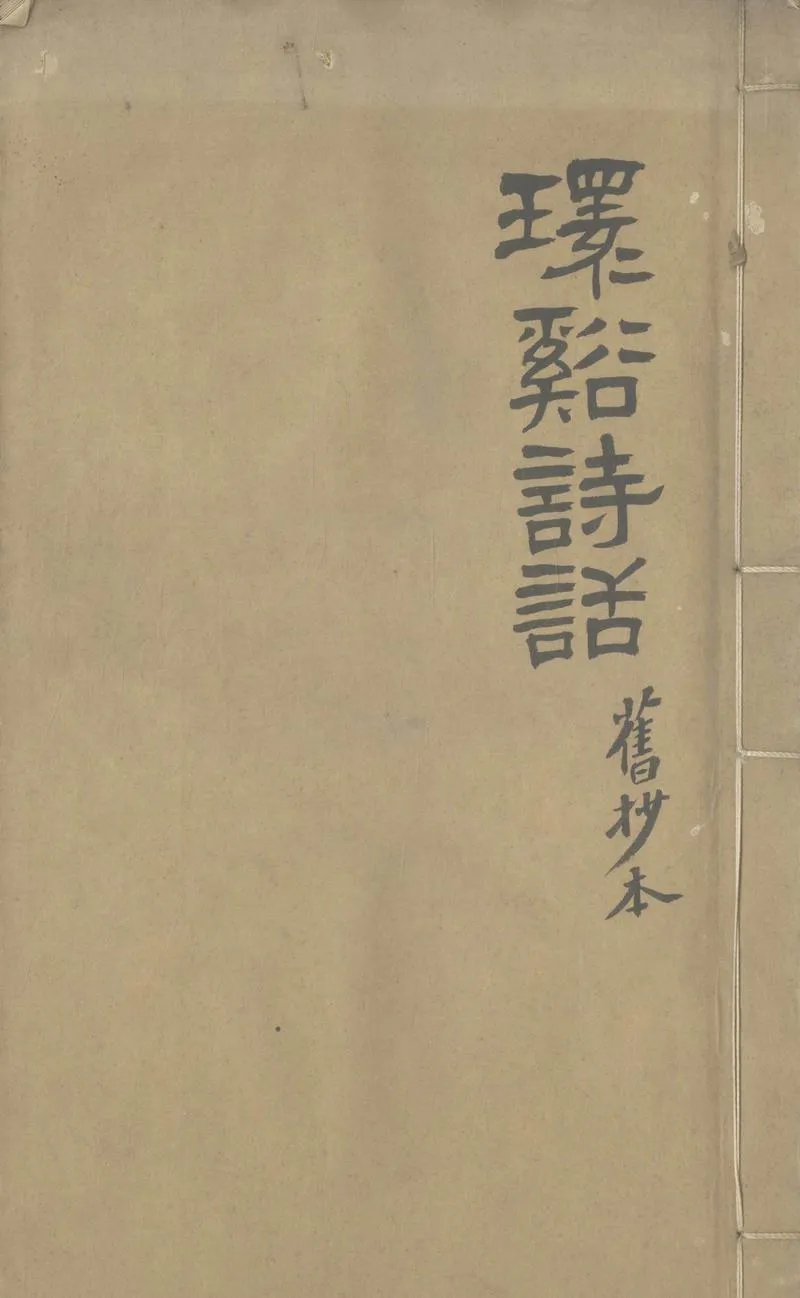 環谿詩話
舊抄本